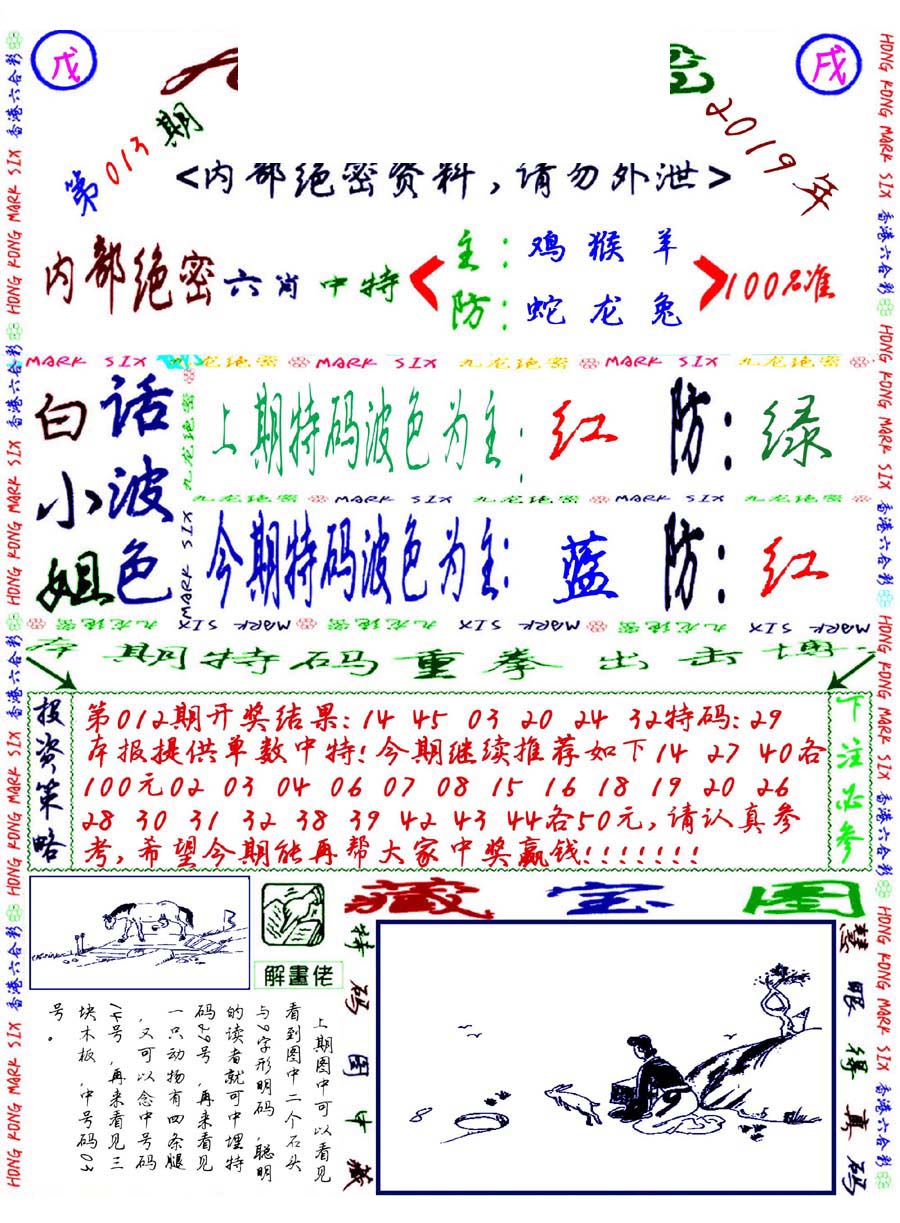 戊
戌
第013期
2019年
<内部绝密资料,请勿外泄>
内部绝密六肖中特
主:鸡猴羊
防:蛇龙兔
100%准
MARK SIX 九龙绝密 MARK SIX 九龙绝密 MARK SIX 九龙绝密
白话波色
小姐
上期特码波色为主:红 防:绿
九龙绝密 MARK SIX 九龙绝密 MARK SIX 九龙绝密
今期特码波色为主:蓝 防:红
九龙绝密
MARK SIX
MARK SIX 九龙绝密 MARK SIX 九龙绝密 MARK SIX 九龙绝密
本期特码重拳出击博
投资策略
第012期开奖结果:14 45 03 20 24 32特码:29
本报提供单数中特!今期继续推荐如下14 27 40各
100元02 03 04 06 07 08 15 16 18 19 20 26
28 30 31 32 38 39 42 43 44各50元,请认真参
考,希望今期能再帮大家中奖赢钱!!!!!!!
下注必参
藏宝图
解畫佬
上期图中可以看见
看到图中二个石头
与9字形明码,聪明
的读者就可中埋特
码29号,再来看见
一只动物有四条腿
,又可以念中号码
14号,再来看见三
块木板,中号码03
号。
特码图中藏
慧眼得真码
HONG KONG MARK SIX 香港六合彩 HONG KONG MARK SIX 香港六合彩 HONG KONG MARK SIX 香港六合彩 HONG KONG MARK SIX 香港六合彩
HONG KONG MARK SIX 香港六合彩 HONG KONG MARK SIX 香港六合彩 HONG KONG MARK SIX 香港六合彩 HONG KONG MARK SIX 香港六合彩